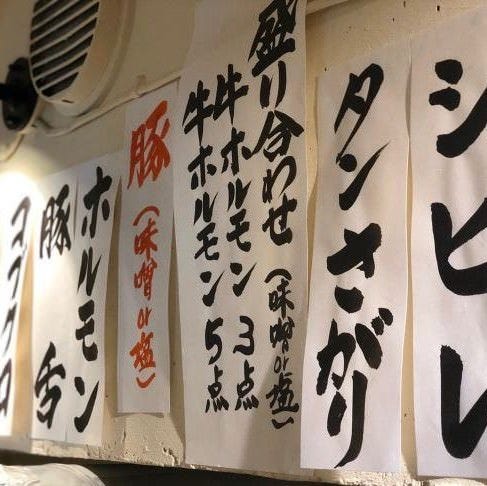 シビレ
タンさがり
盛り合わせ(味噌or塩)
牛ホルモン3点
牛ホルモン5点
豚(味噌or塩)
ホルモン
豚舌
コブクロ